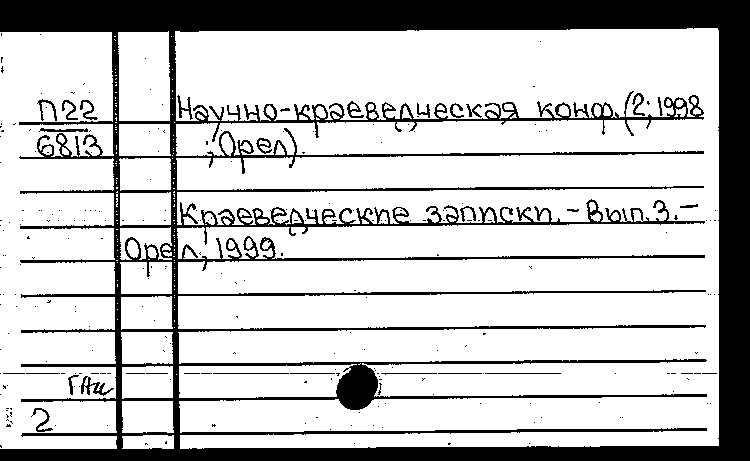 П22
6813
Научно-краеведческая конф. (2; 1998
; Орел).
Краеведческие записки. - Вып. 3. -
Орел, 1999.
2